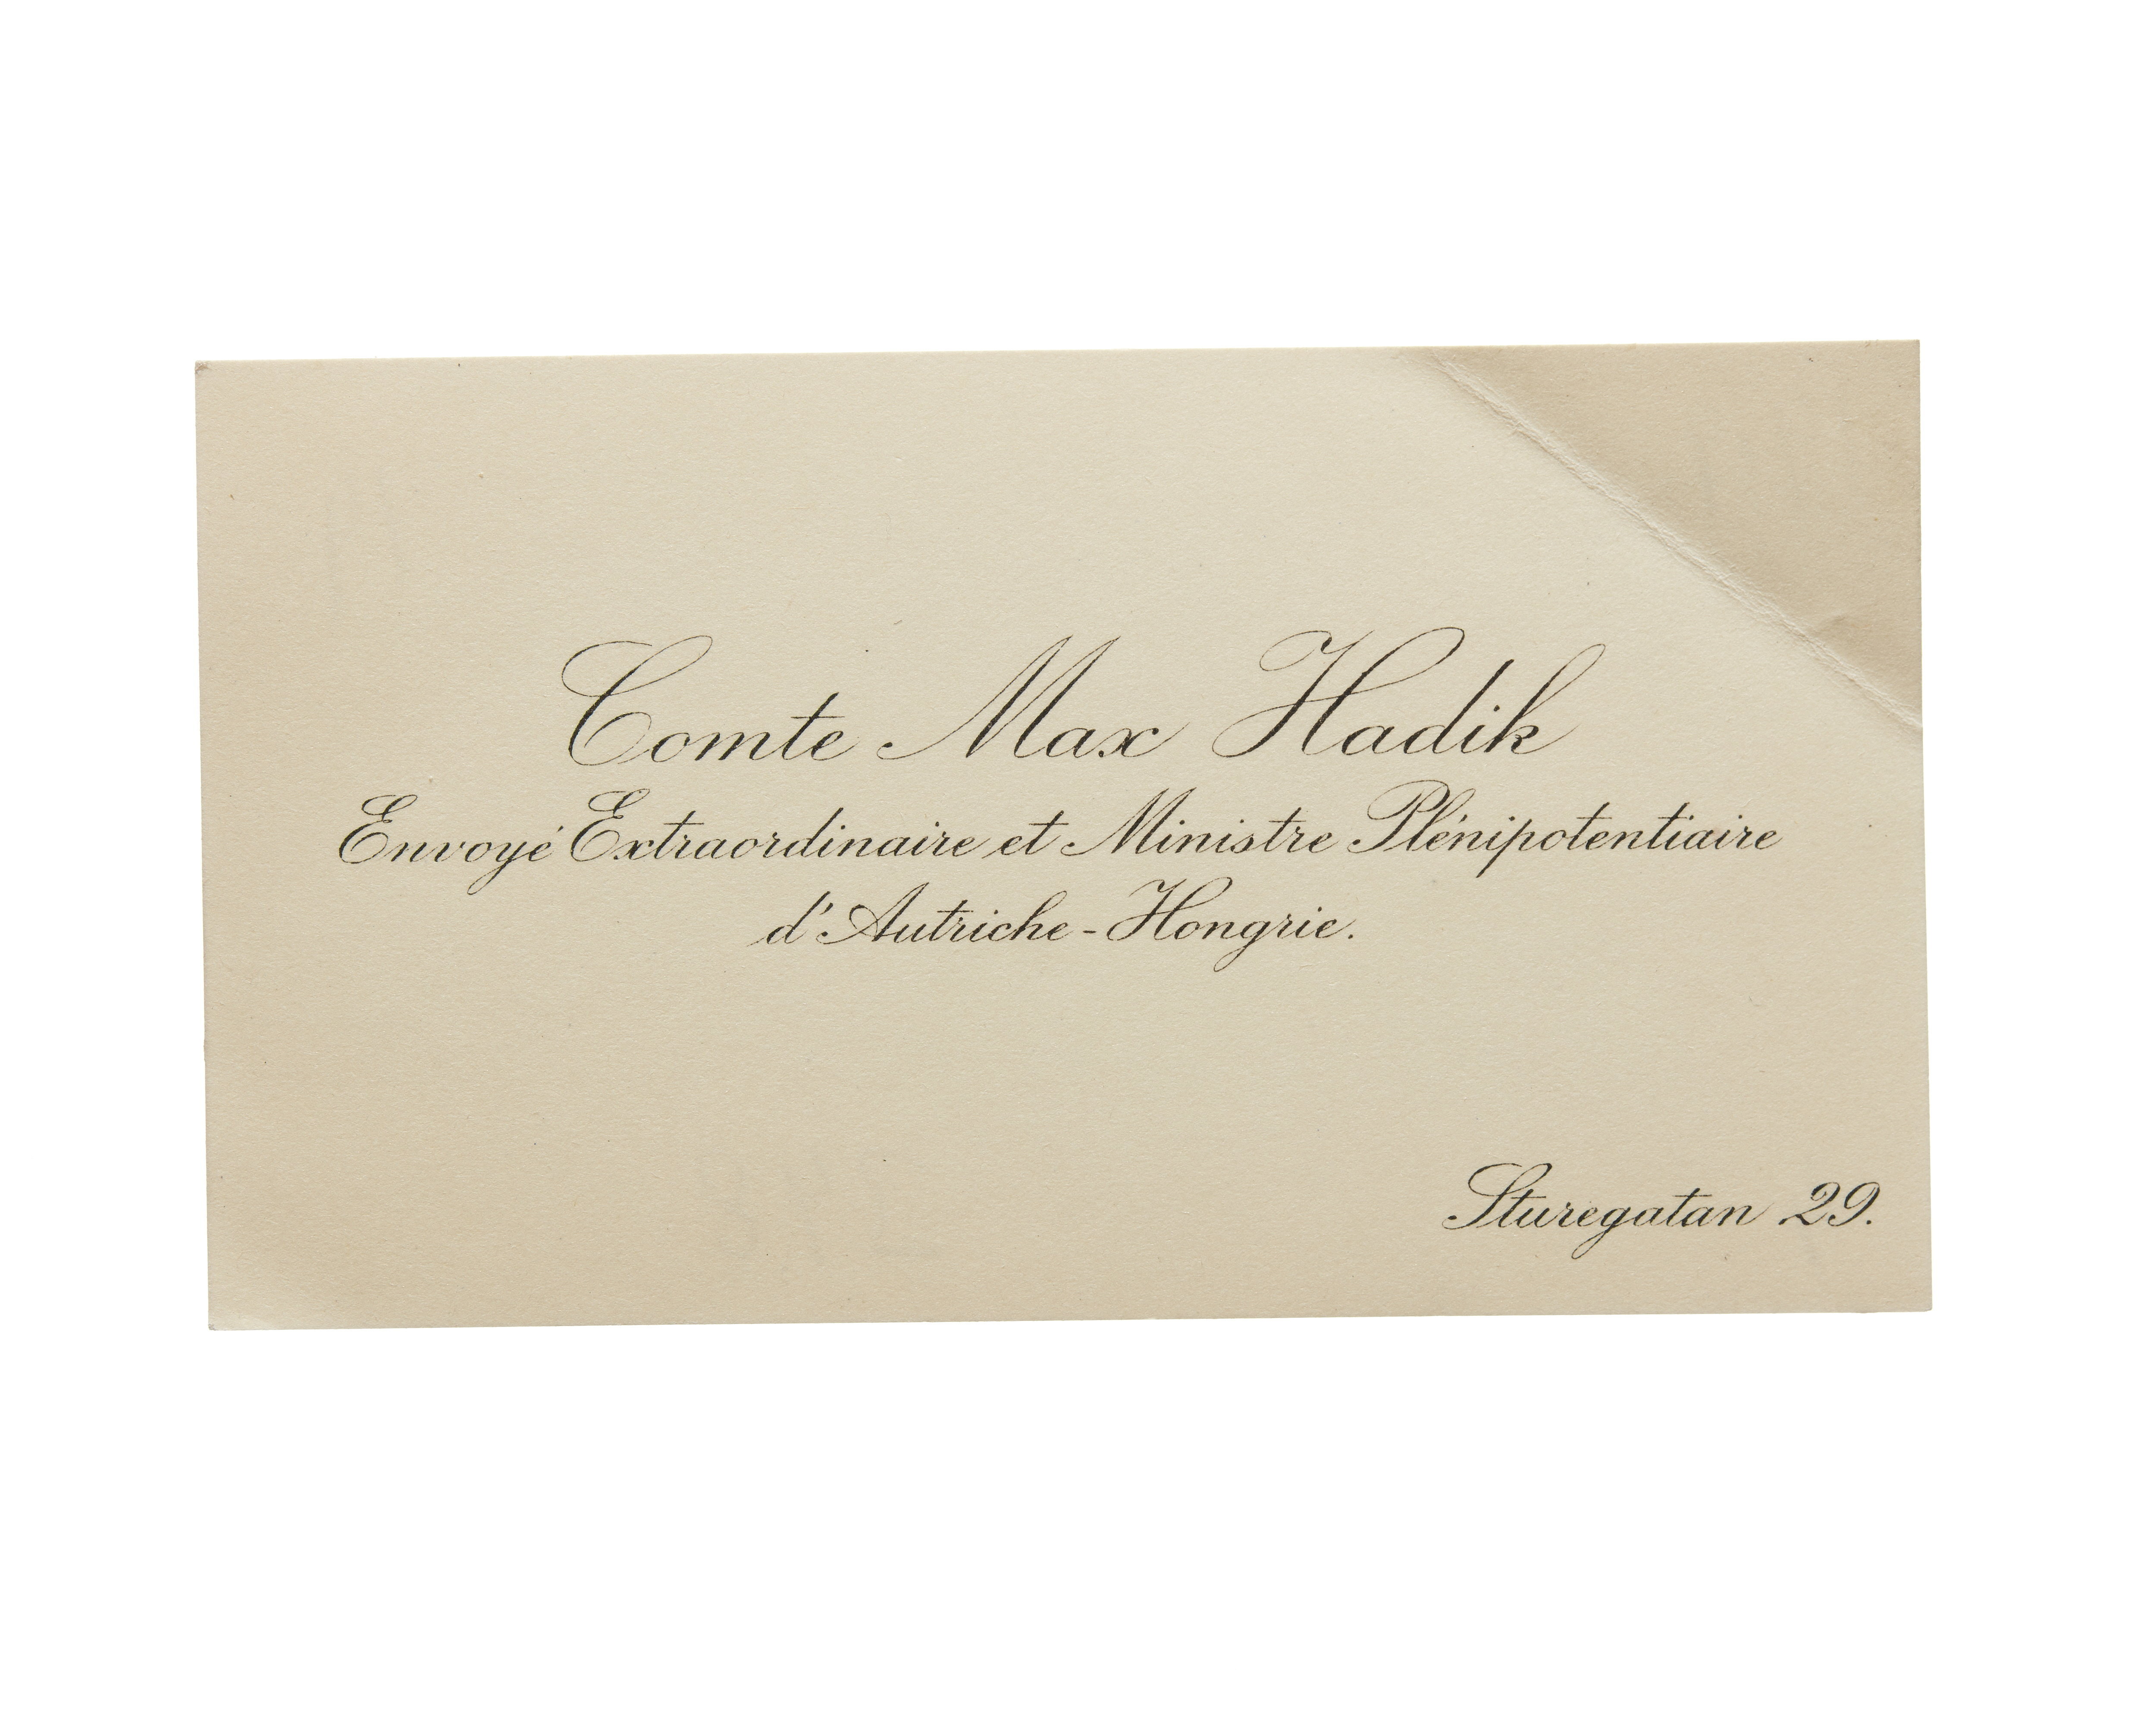 Comte Max Hadik
Envoyé Extraordinaire et Ministre Plénipotentiaire
d'Autriche-Hongrie.
Sturegatan 29.